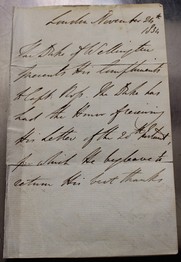 London November 26th
1834
The Duke of Wellington
presents His Compliments
to Capt. Ross. The Duke has
had the Honor of receiving
His Letter of the 20th Instant,
for which He begs leave to
return His best thanks